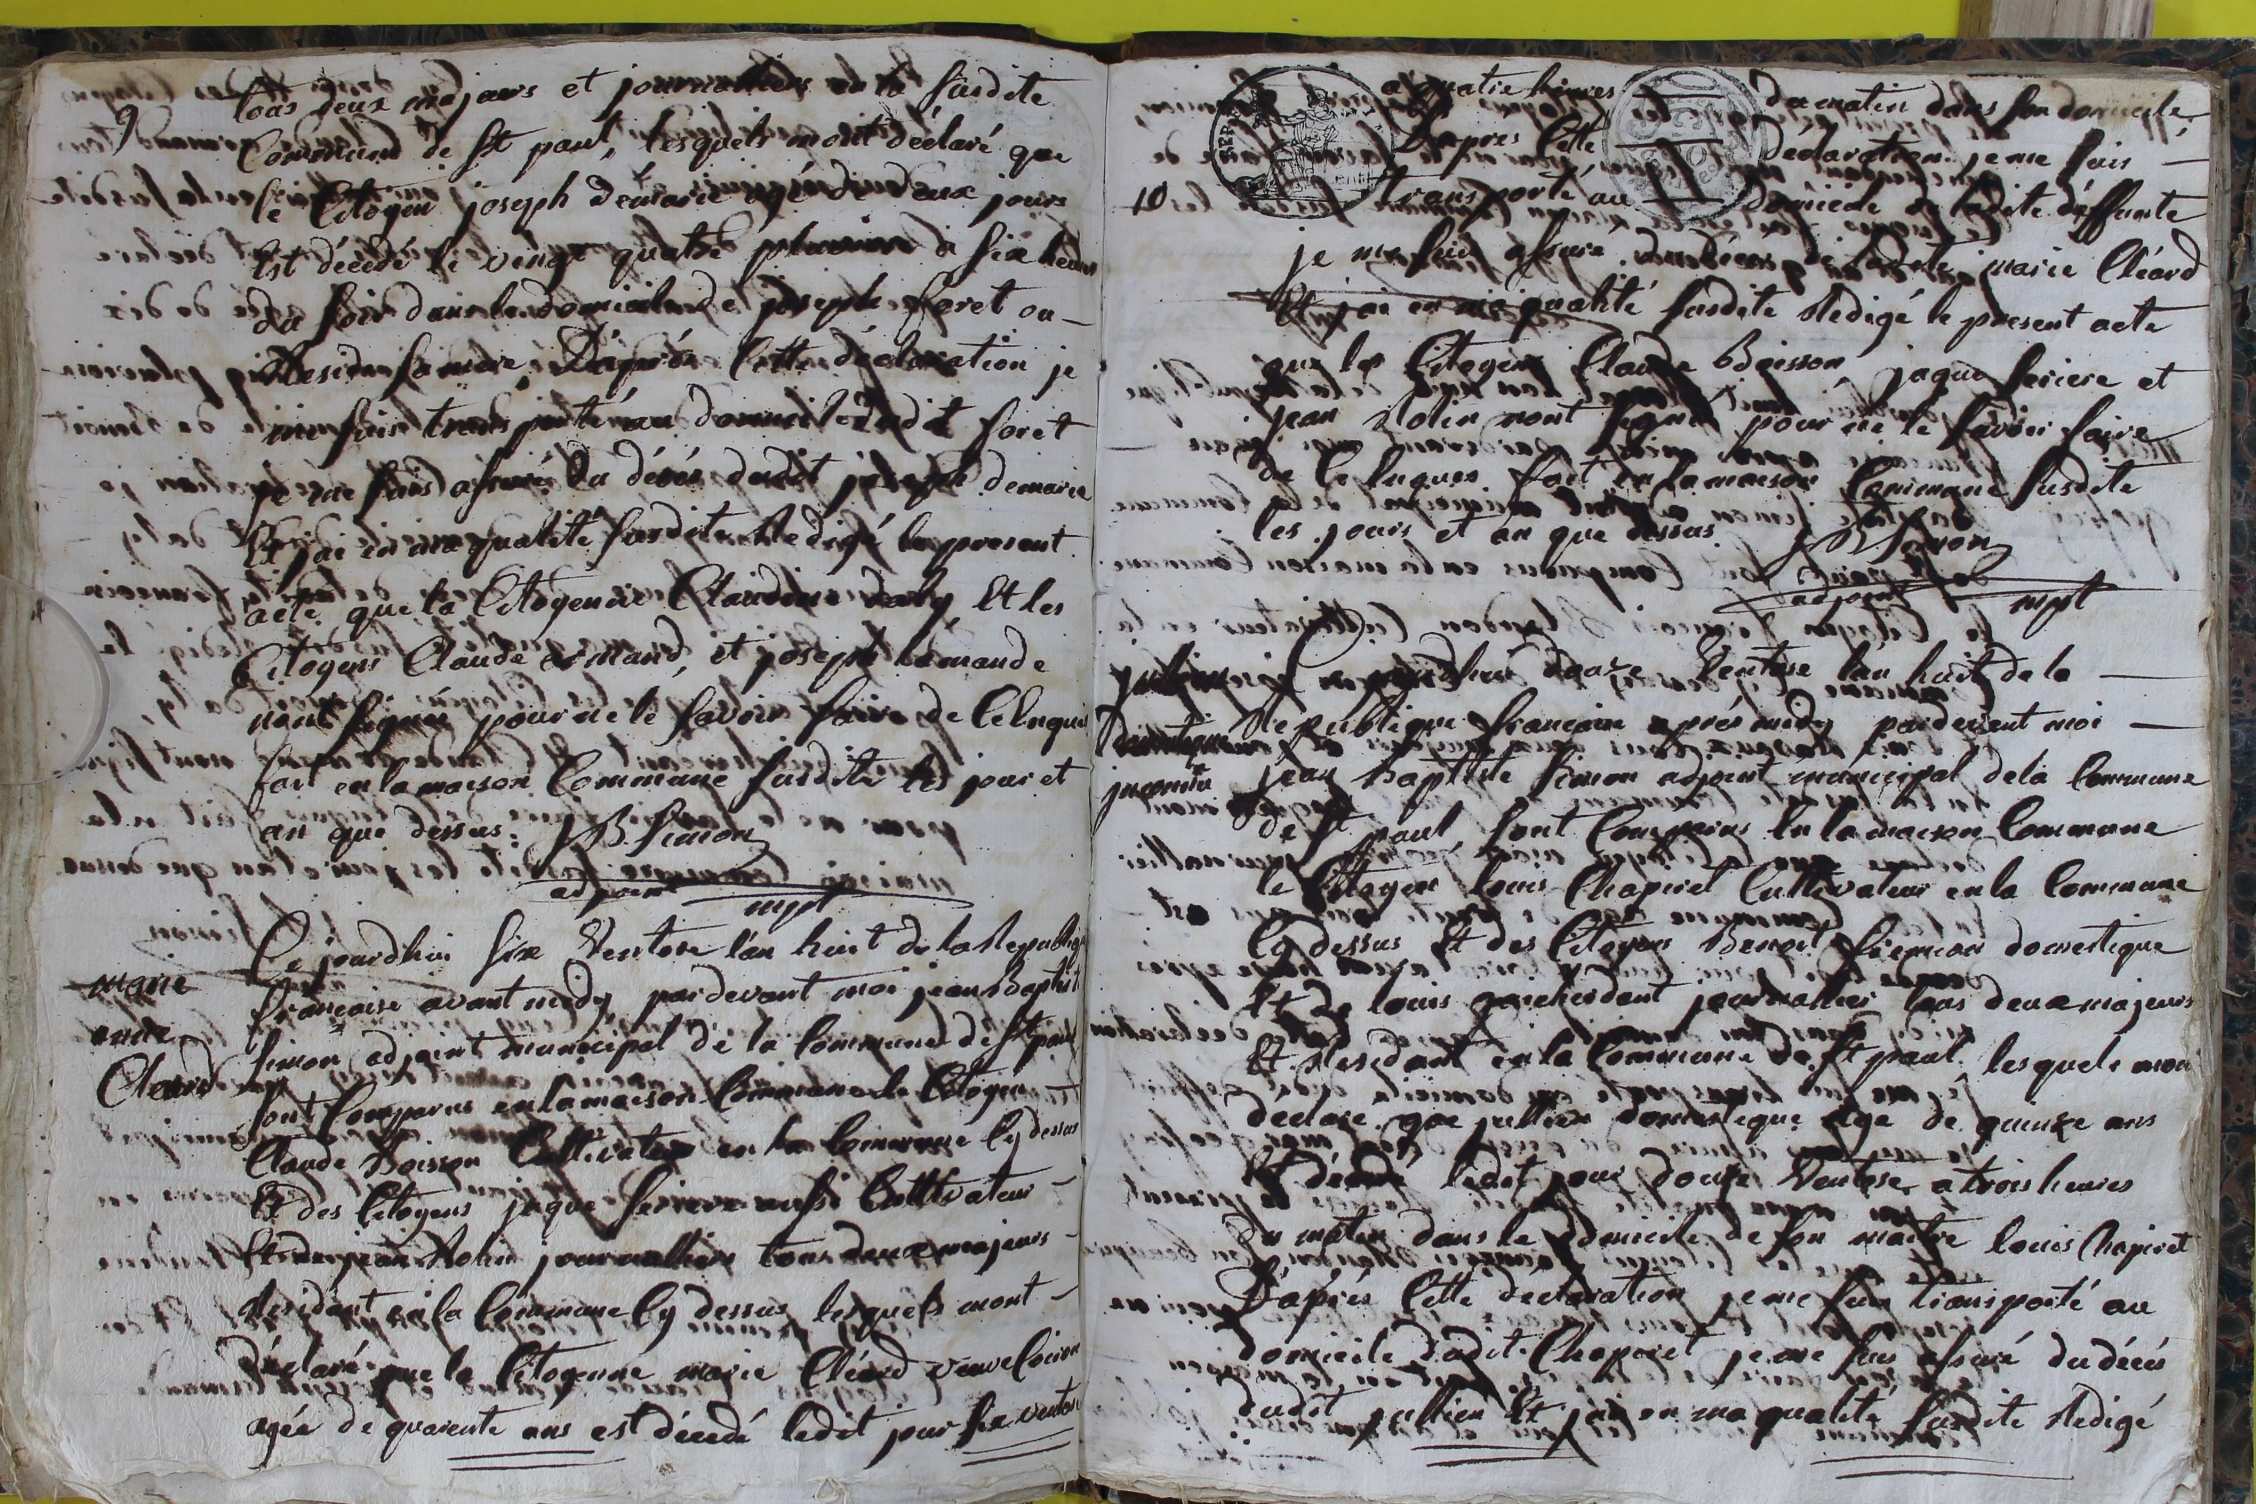 9
tous deux majeurs et journalliers en la susdite
Commune de St paul, lesquels mont déclaré que
le Citoyen joseph demarie agé de deux jours
Est décédé le vingt quatre pluviose à six heures
du soir dans le domicile de joseph foret ou
Reside sa mere D'après Cette déclaration je
me suis transporté au domicile dudit foret
je me suis assuré du décès dudit joseph demarie
Et jai en ma qualité susdite Redigé le present
acte que la Citoyenne Claudine daly Et les
Citoyens Claude et joseph
nont signés pour ne le savoir faire de Ce Enquis
fait en la maison Commune susdite les jour et
an que dessus. JB Simon
adjoint mpl
marie
Cleard
Ce jourdhui six Ventose l'an huit de la Republique
française avant midy pardevant moi jean Baptiste
Simon adjoint municipal de la Commune de St paul
sont Comparus en la maison Commune le Citoyen
Claude Boisson Cultivateur en la Commune Cy dessus
Et des Citoyens jaque feriere aussi Cultivateur
Et de jean Rolin journallier tous deux majeurs
Residant en la Commune Cy dessus lesquels mont
Déclaré que la Citoyenne marie Cléard veuve
agée de quarente ans est décédé ledit jour six ventose
10
a quatre heures du matin dans son domicile
D'apres Cette déclaration je me suis
transporté au domicile de ladite deffunte
je me suis assuré du décès de ladite marie Cléard
Et jai en ma qualité susdite Redigé le present acte
que les Citoyens Claude Boisson jaque feriere et
jean Rolin nont signé pour ne le savoir faire
de Ce Enquis fait en la maison Commune susdite
les jours et an que dessus JB Simon
adjoint mpl
jullien
domestique
inconnu
Ce jourdhui douze Ventose l'an huit de la
Republique française après midy pardevant moi
jean Baptiste Simon adjoint municipal de la Commune
de St paul sont Comparus en la maison Commune
le Citoyen louis Chapiret Cultivateur en la Commune
Cy dessus Et des Citoyens Benoit domestique
Et de louis journallier tous deux majeurs
Et Residant en la Commune de St paul lesquels mon
declare que jullien domestique âge de quinze ans
Et décédé ledit jour douze Ventose a trois heures
du matin dans le domicile de son maitre louis Chapiret
D'après Cette declaration je me suis transporté au
domicile dudit Chapiret je me suis assuré du décès
dudit jullien Et jai en ma qualité susdite Redigé